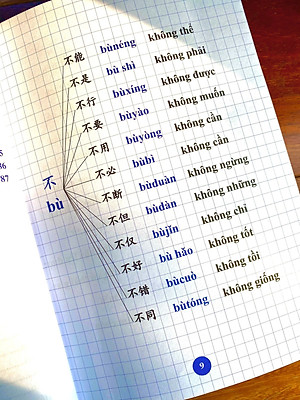 不能 bùnéng không thể
不是 bù shì không phải
不行 bùxíng không được
不要 bùyào không muốn
不用 bùyòng không cần
不必 bùbì không cần
不 不断 bùduàn không ngừng
bù 不但 bùdàn không những
不仅 bùjǐn không chỉ
不好 bù hǎo không tốt
不错 bùcuò không tồi
不同 bùtóng không giống
5
36
787
9